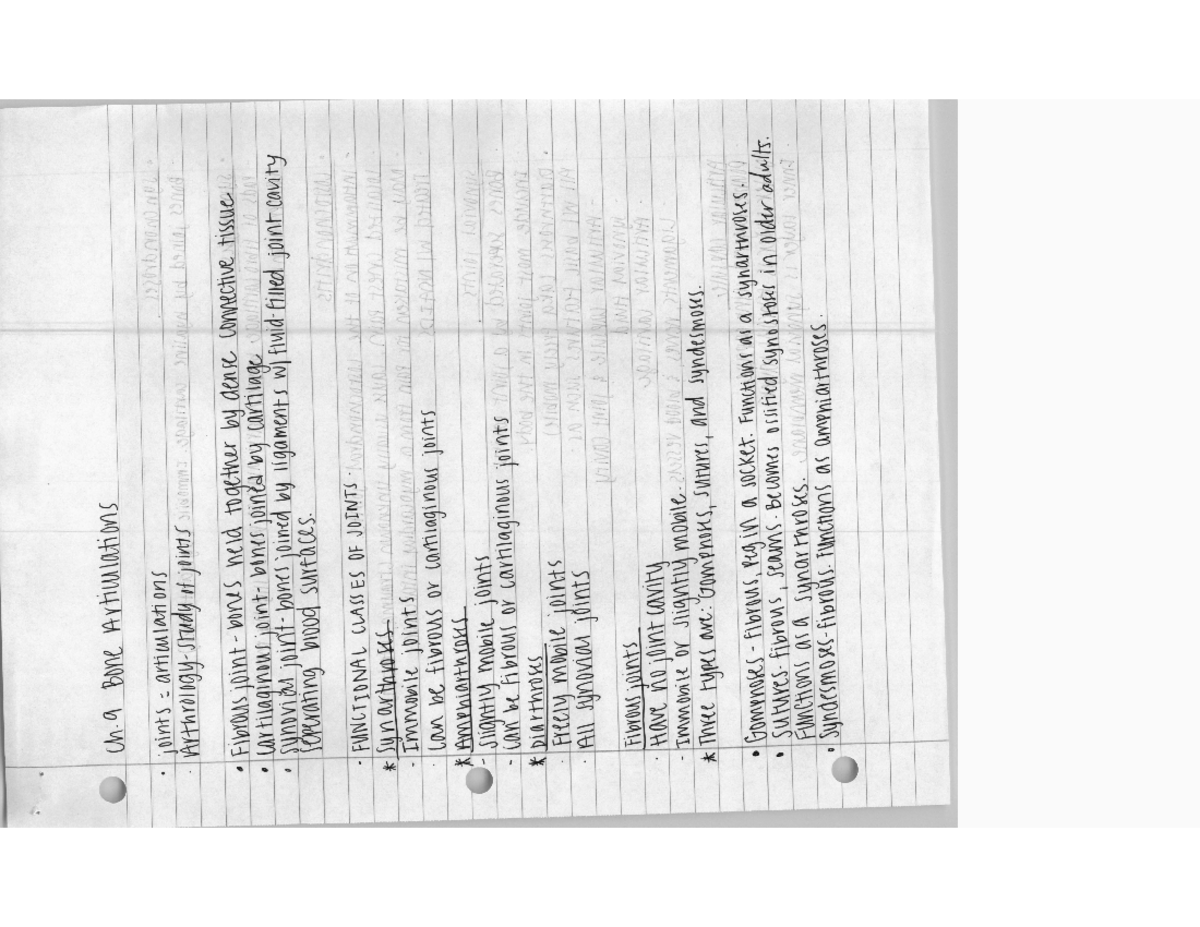 Ch. 9 Bone Articulations
· joints = articulations
· Arthrology - study of joints
• Fibrous joint - bones held together by dense connective tissue.
• Cartilaginous joint - bones joined by cartilage
• Synovial joint - bones joined by ligaments w/ fluid-filled joint cavity
seperating blood surfaces.
· FUNCTIONAL CLASSES OF JOINTS ·
* Synarthroses
- Immobile joints
· Can be fibrous or cartiaginous joints
* Amphiarthroses
- Slightly mobile joints
- can be fibrous or cartilaginous joints
* Diarthroses
· Freely mobile joints
· All synovial joints
Fibrous joints
· Have no joint cavity
- Immobile or slightly mobile.
* Three types are: Gomphoses, sutures, and syndesmoses.
• Gomphoses - fibrous, peg in a socket. Functions as a synarthroses.
• Sutures - fibrous, seams. Becomes ossified synostosis in older adults.
Functions as a synarthroses.
• Syndesmoses - fibrous. Functions as amphiarthroses.